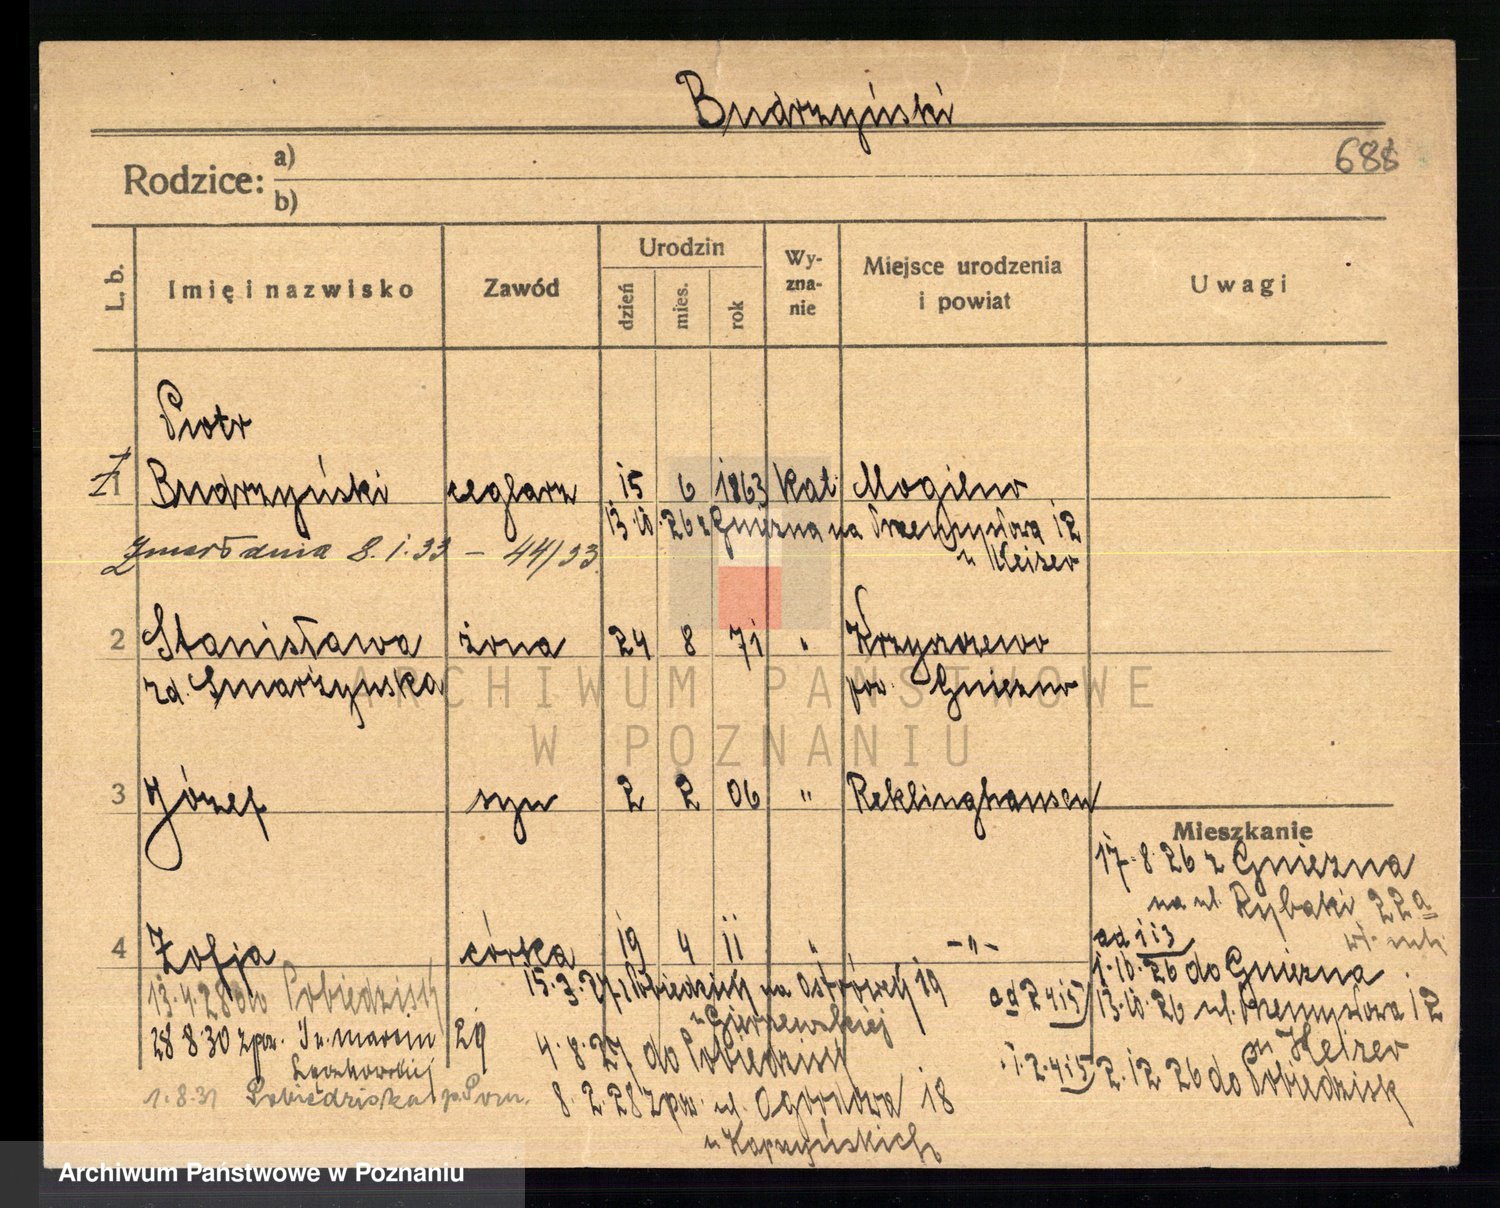 Budrzyński
688
Rodzice: a)
b)
L. b.
Imię i nazwisko
Zawód
Urodzin
dzień
mies.
rok
Wy-
zna-
nie
Miejsce urodzenia
i powiat
Uwagi
Piotr
1 Budrzyński ceglarz 15 6 1863 Kat. Mogilno
13.10.26 z Gniezna na Przemysłowa 12
u Heizer
Zmarł dnia 8.1.33 – 44/33
2 Stanisława żona 24 8 71 "
rd. Smarzyńska pow. Gniezno
3 Józef syn 2 2 06 " Reklinghausen
4 Zofja córka 19 4 11 " – " –
Mieszkanie
17.8.26 z Gniezna
na ul. Rybaki 22a
ad 113
1.10.26 do Gniezna
ad 2415 13.10.26 ul. Przemysłowa 12
u Heizer
1.2.415 2.12.26 do Pobiedzisk
13.4.28 do Pobiedzisk
15.3.27 z Pobiedzisk na Ostrówek 19
u Gierzewskiej
28 8.30 zpow. Św. Marcin 29
4.8.27 do Pobiedzisk
1.8.31 Pobiedziska p. Pozn.
8.2.28 zpow. ul. Ogrodowa 18
ARCHIWUM PAŃSTWOWE
W POZNANIU
Archiwum Państwowe w Poznaniu